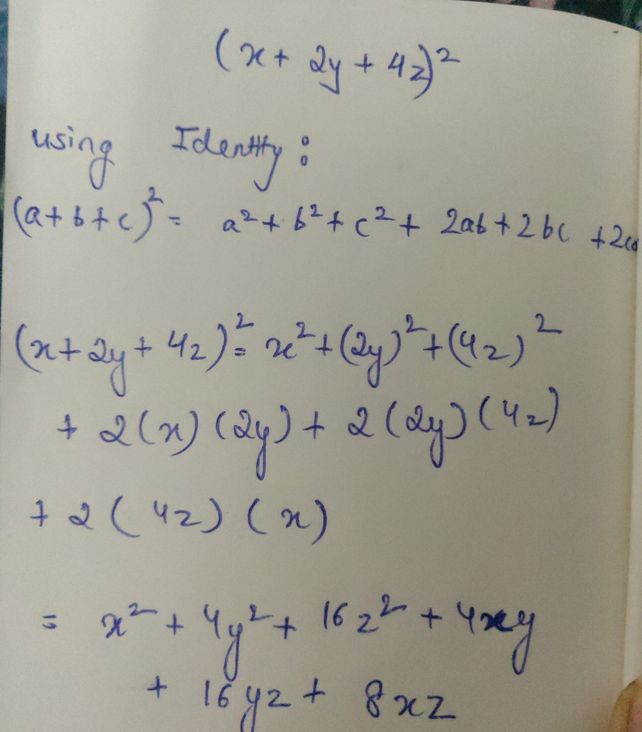 (x + 2y + 4z)²
using Identity :
(a+b+c)² = a² + b² + c² + 2ab + 2bc + 2ca
(x+2y+4z)² = x² + (2y)² + (4z)²
+ 2(x)(2y) + 2(2y)(4z)
+ 2(4z)(x)
= x² + 4y² + 16z² + 4xy
+ 16yz + 8xz